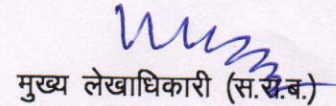 मुख्य लेखाधिकारी (स.स.ब.)